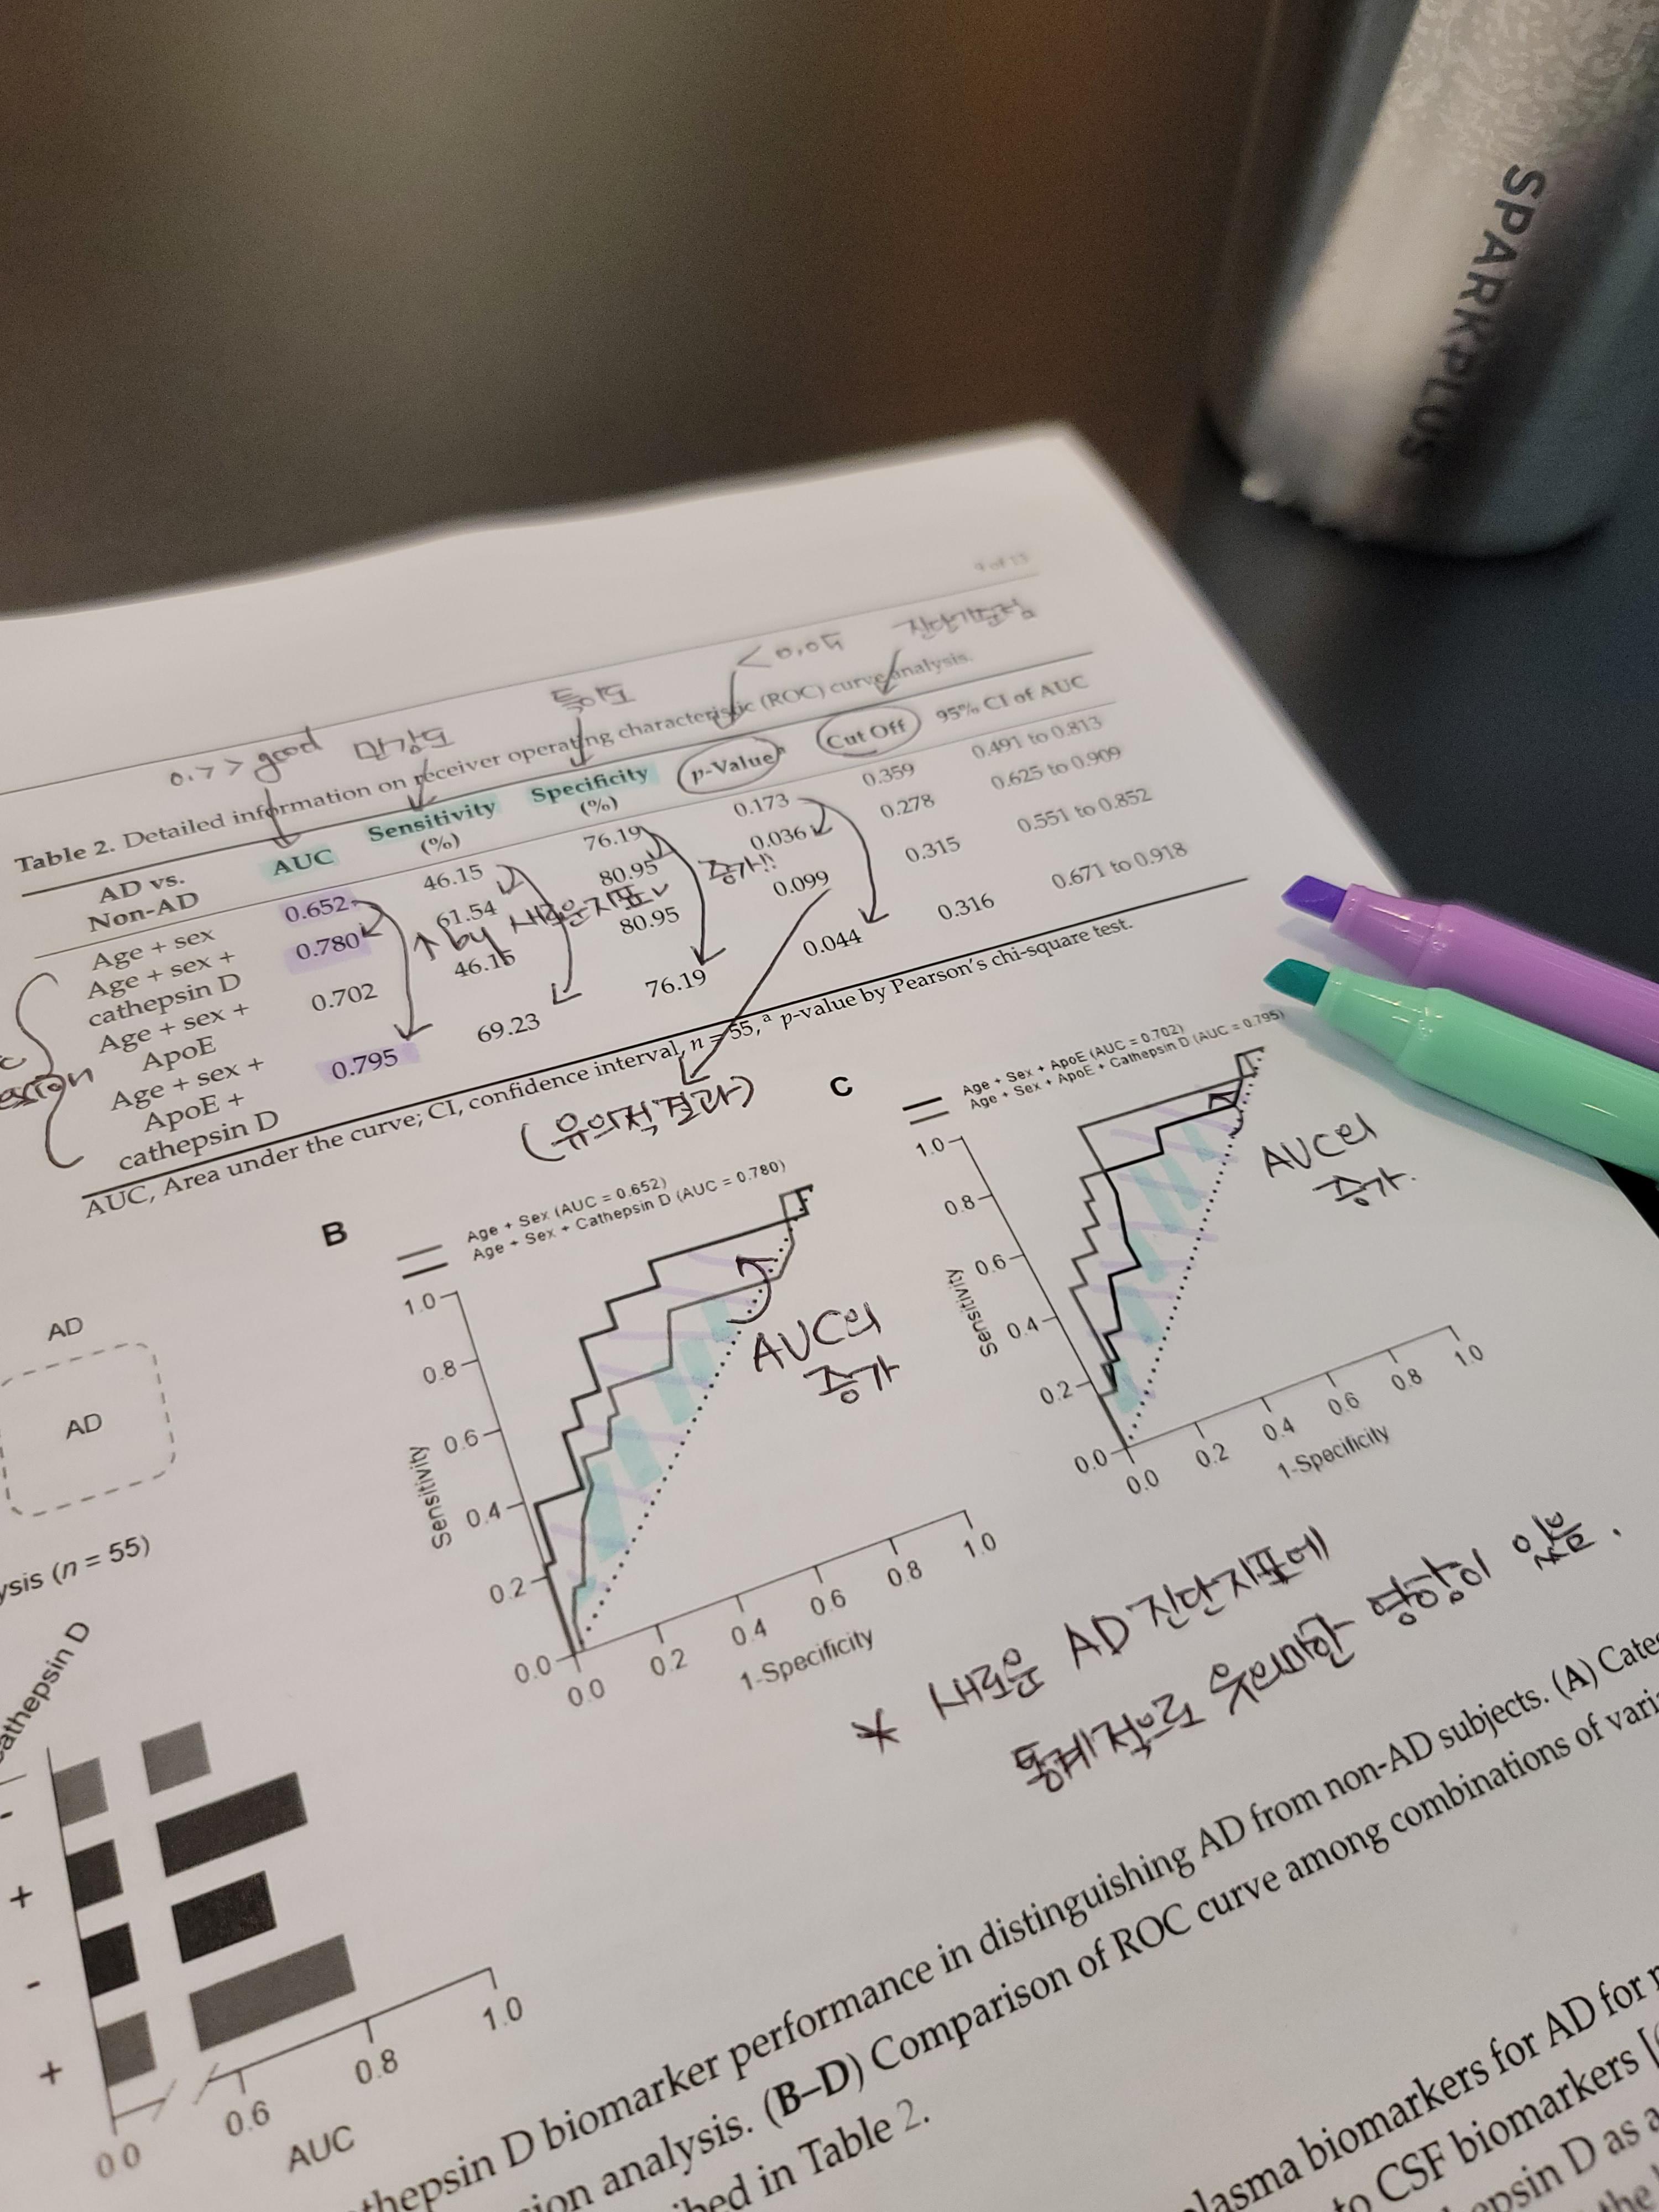 SPARKPLUS
4 of 13
< 0.05 진단기준점
0.7 > > good 민감도 특이도
Table 2. Detailed information on receiver operating characteristic (ROC) curve analysis.
AD vs. Non-AD AUC Sensitivity (%) Specificity (%) p-Value a Cut Off 95% CI of AUC
Age + sex 0.652 46.15 76.19 0.173 0.359 0.491 to 0.813
Age + sex + cathepsin D 0.780 61.54 80.95 0.036 0.278 0.625 to 0.909
↑ by 새로운지표 증가!!
Age + sex + ApoE 0.702 46.15 80.95 0.099 0.315 0.551 to 0.852
Age + sex + ApoE + cathepsin D 0.795 69.23 76.19 0.044 0.316 0.671 to 0.918
AUC, Area under the curve; CI, confidence interval, n = 55, a p-value by Pearson's chi-square test.
(유의적 결과)
B
Age + Sex (AUC = 0.652)
Age + Sex + Cathepsin D (AUC = 0.780)
1.0
0.8
0.6
0.4
0.2
0.0
Sensitivity
0.0 0.2 0.4 0.6 0.8 1.0
1-Specificity
AUC의
증가
C
Age + Sex + ApoE (AUC = 0.702)
Age + Sex + ApoE + Cathepsin D (AUC = 0.795)
1.0
0.8
0.6
0.4
0.2
0.0
Sensitivity
0.0 0.2 0.4 0.6 0.8 1.0
1-Specificity
AUC의
증가.
* 새로운 AD 진단지표에
통계적으로 유의미한 영향이 있음.
AD
AD
(n = 55)
D
-
+
-
+
0.0 0.6 0.8 1.0
AUC
D biomarker performance in distinguishing AD from non-AD subjects. (A)
analysis. (B–D) Comparison of ROC curve among combinations of
in Table 2.
biomarkers for AD for
to CSF biomarkers
D as a
the